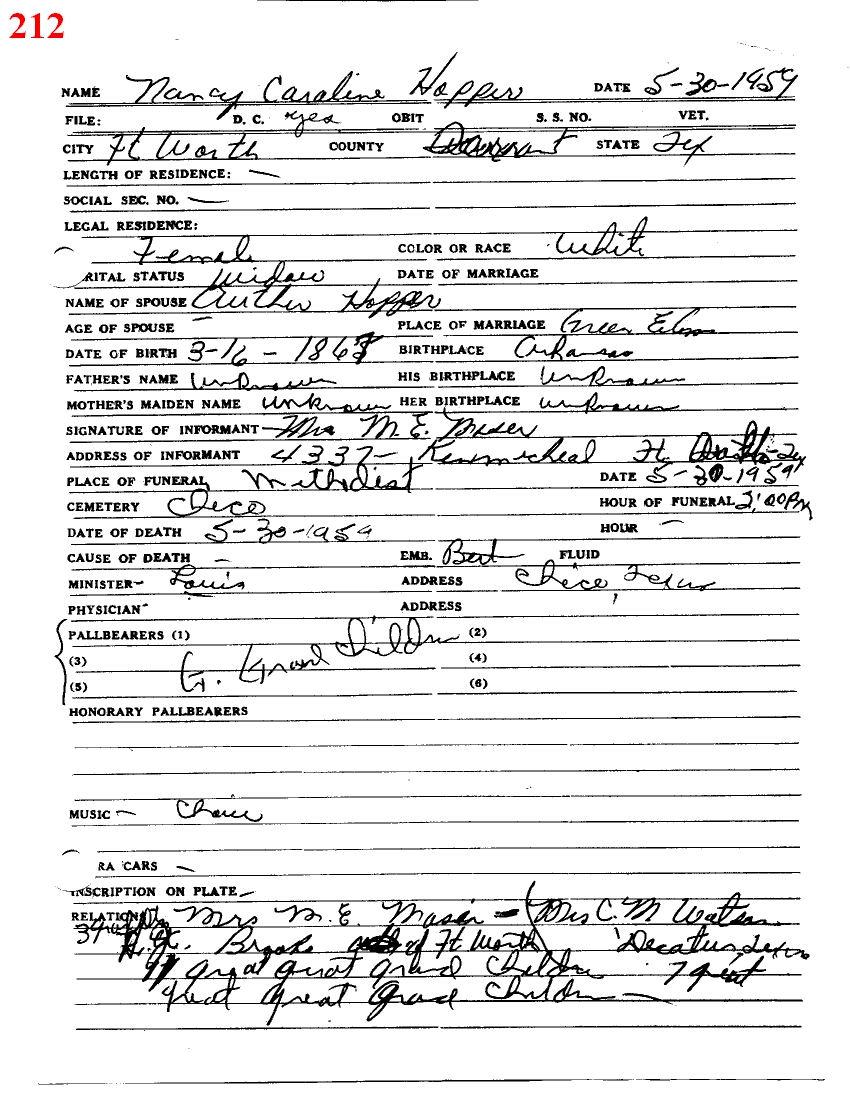 212
NAME Nancy Caroline Hopper DATE 5-30-1959
FILE: D. C. yes OBIT S. S. NO. VET.
CITY Ft Worth COUNTY STATE Tex
LENGTH OF RESIDENCE: —
SOCIAL SEC. NO. —
LEGAL RESIDENCE:
Female COLOR OR RACE White
RITAL STATUS Widow DATE OF MARRIAGE
NAME OF SPOUSE Arther Hopper
AGE OF SPOUSE — PLACE OF MARRIAGE Green
DATE OF BIRTH 3-16-1867 BIRTHPLACE Arkansas
FATHER'S NAME Unknown HIS BIRTHPLACE Unknown
MOTHER'S MAIDEN NAME Unknown HER BIRTHPLACE Unknown
SIGNATURE OF INFORMANT — Mrs M. E.
ADDRESS OF INFORMANT 4337- Ft Tex
PLACE OF FUNERAL Methodist DATE 5-30-1959
CEMETERY Chico HOUR OF FUNERAL 2:00PM
DATE OF DEATH 5-30-1959 HOUR —
CAUSE OF DEATH — EMB. Bert FLUID
MINISTER — Louis ADDRESS Chico, Texas
PHYSICIAN - ADDRESS
PALLBEARERS (1) (2)
G. Grand Children
(3) (4)
(5) (6)
HONORARY PALLBEARERS
MUSIC — Choir
RA CARS —
INSCRIPTION ON PLATE —
RELATION Mrs M. E. — Mrs C. M Watson
Brooks of Ft Worth Decatur, Texas
great great grand Children 7 great
great great grand Children —